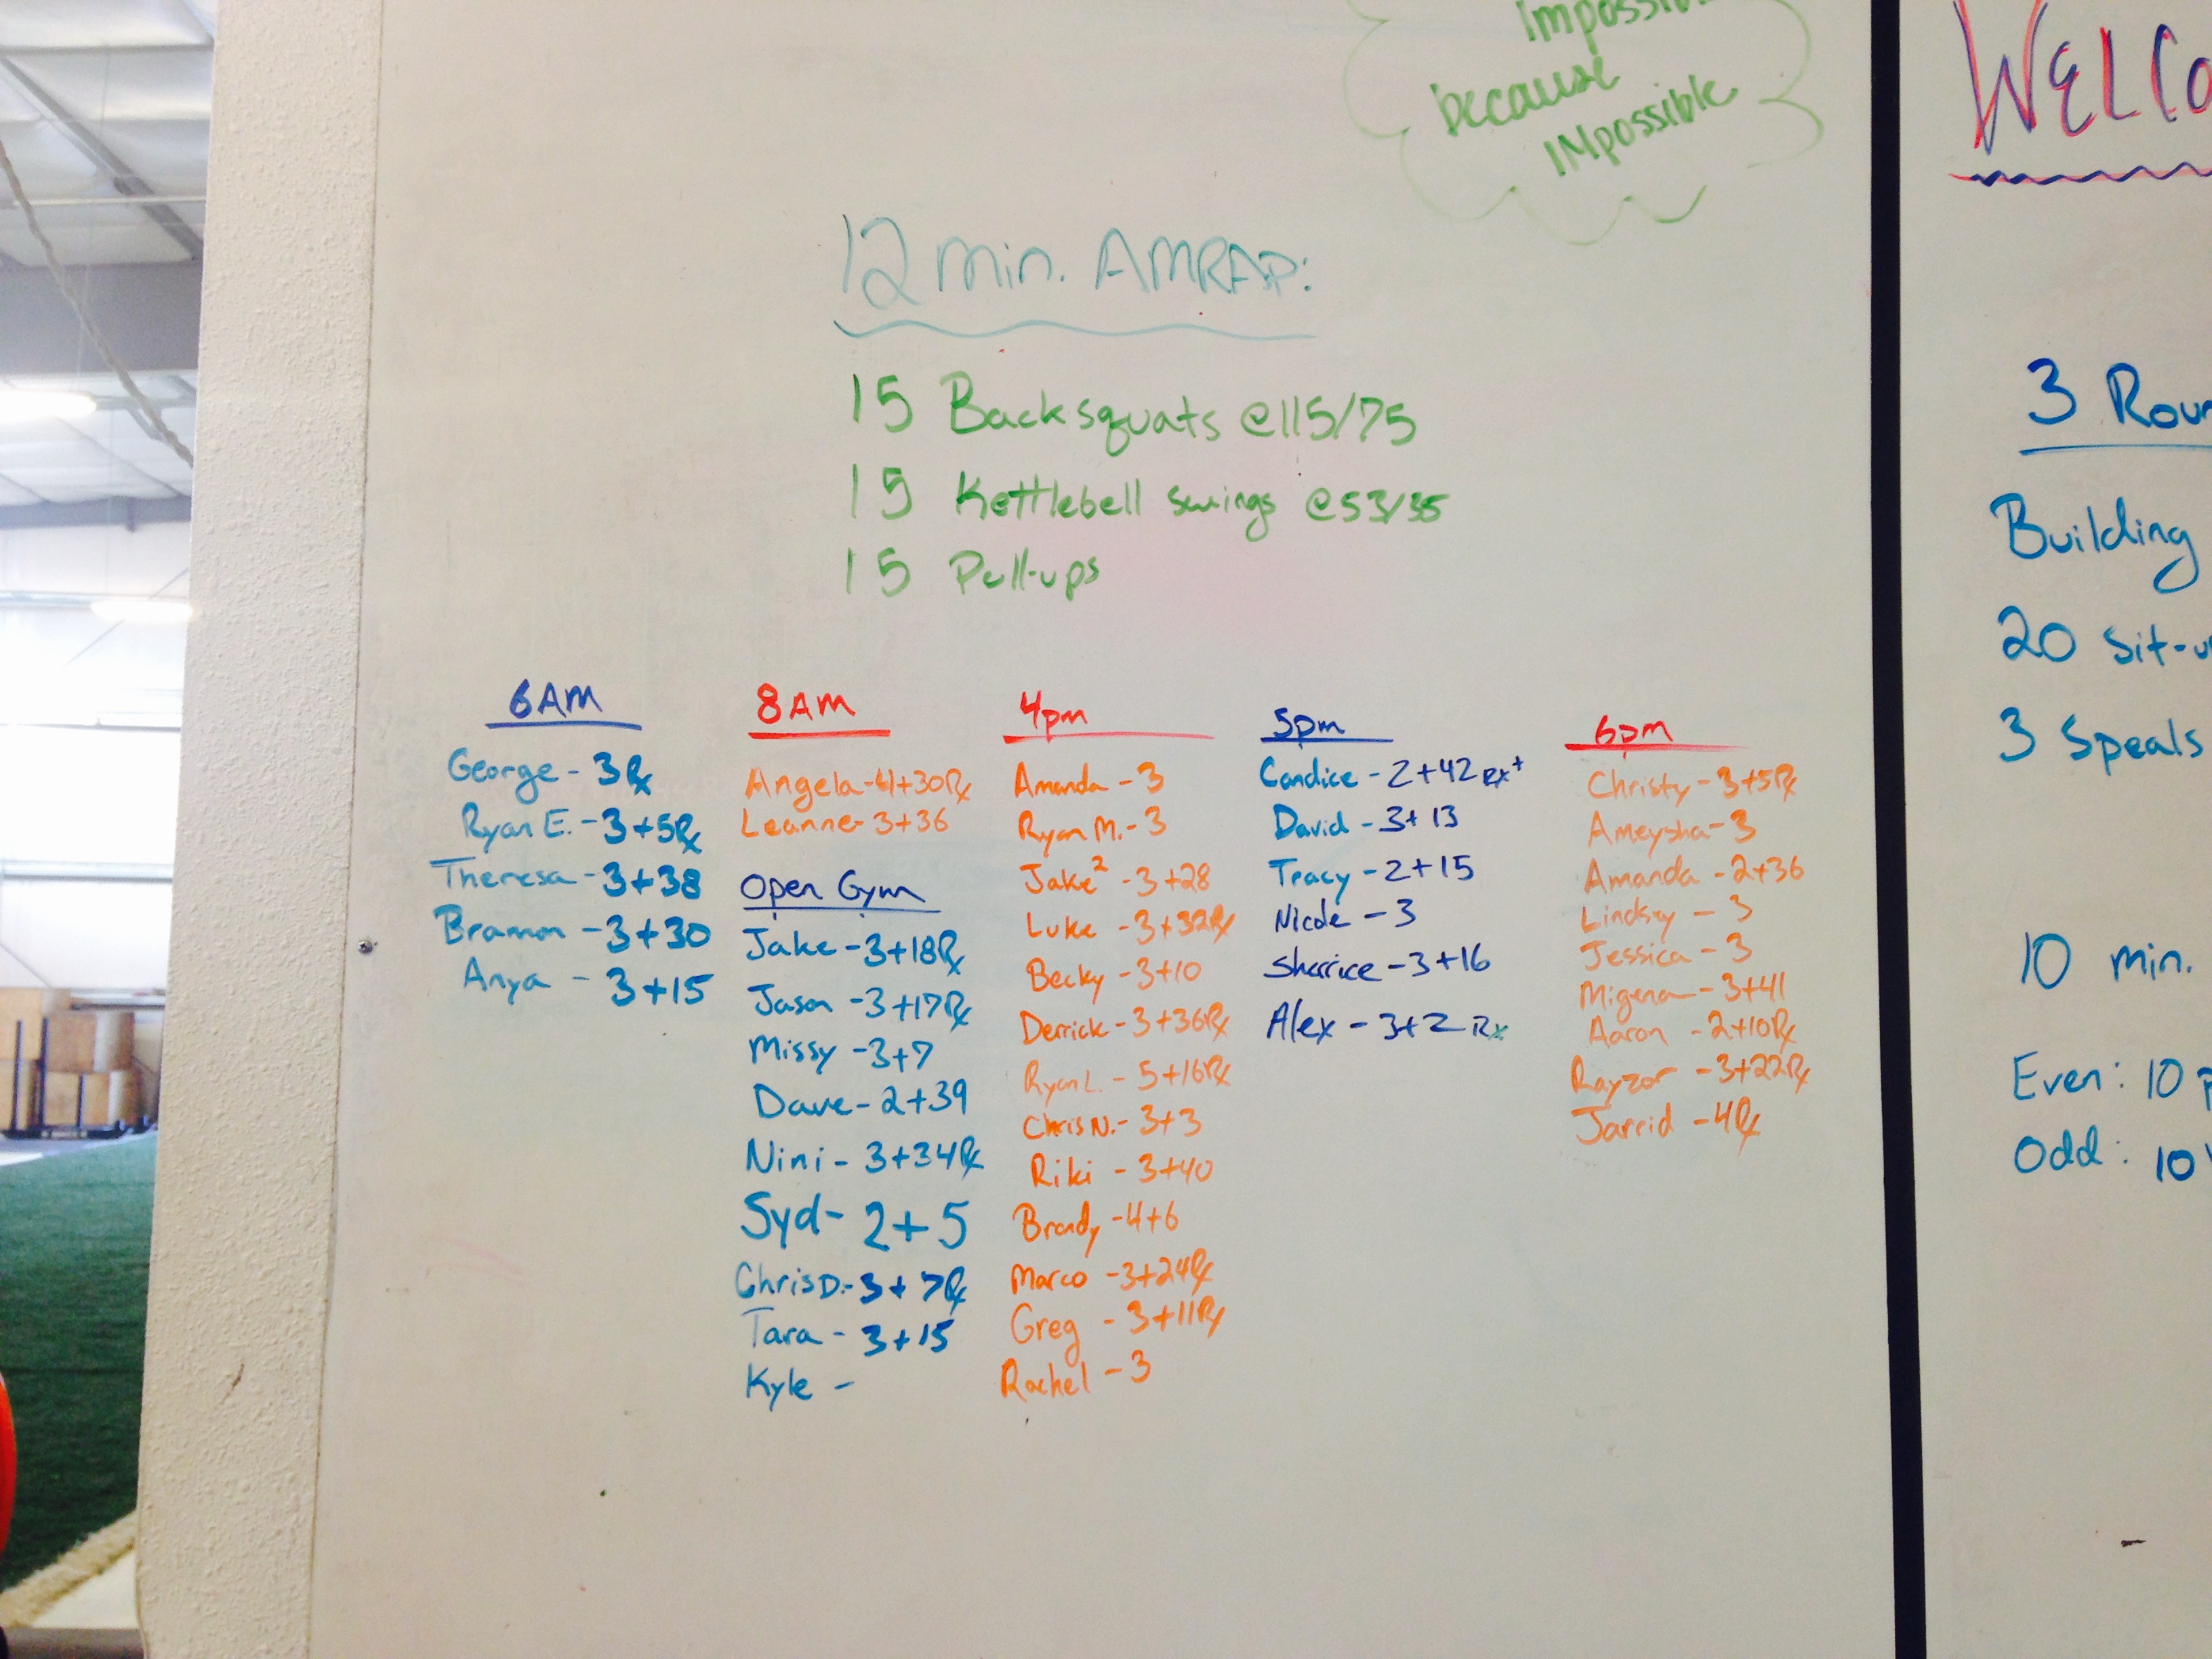 because
Impossible
12 min. AMRAP:
15 Backsquats @115/75
15 Kettlebell swings @53/35
15 Pull-ups
6AM
George - 3 Rx
Ryan E. - 3+5 Rx
Theresa - 3+38
- 3+30
Anya - 3+15
8AM
Angela - 4+30 Rx
Leanne - 3+36
Open Gym
Jake - 3+18 Rx
Jason - 3+17 Rx
Missy - 3+7
Dave - 2+39
Nini - 3+34 Rx
Syd - 2+5
Chris D. - 3+7 Rx
Tara - 3+15
Kyle -
4pm
Amanda - 3
Ryan M. - 3
Jake² - 3+28
Luke - 3+32 Rx
Becky - 3+10
Derrick - 3+36 Rx
Ryan L. - 5+16 Rx
Chris N. - 3+3
Riki - 3+40
Brady - 4+6
Marco - 3+24 Rx
Greg - 3+11 Rx
Rachel - 3
5pm
Candice - 2+42 Rx+
David - 3+13
Tracy - 2+15
Nicole - 3
Sharice - 3+16
Alex - 3+2 Rx
6pm
Christy - 3+5 Rx
Ameysha - 3
Amanda - 2+36
Lindsey - 3
Jessica - 3
Migena - 3+41
Aaron - 2+10 Rx
Rayzor - 3+22 Rx
Jarrid - 4 Rx
WELCO
3 Roun
Building
20 Sit-u
3 Speals
10 min.
Even: 10 p
Odd: 10